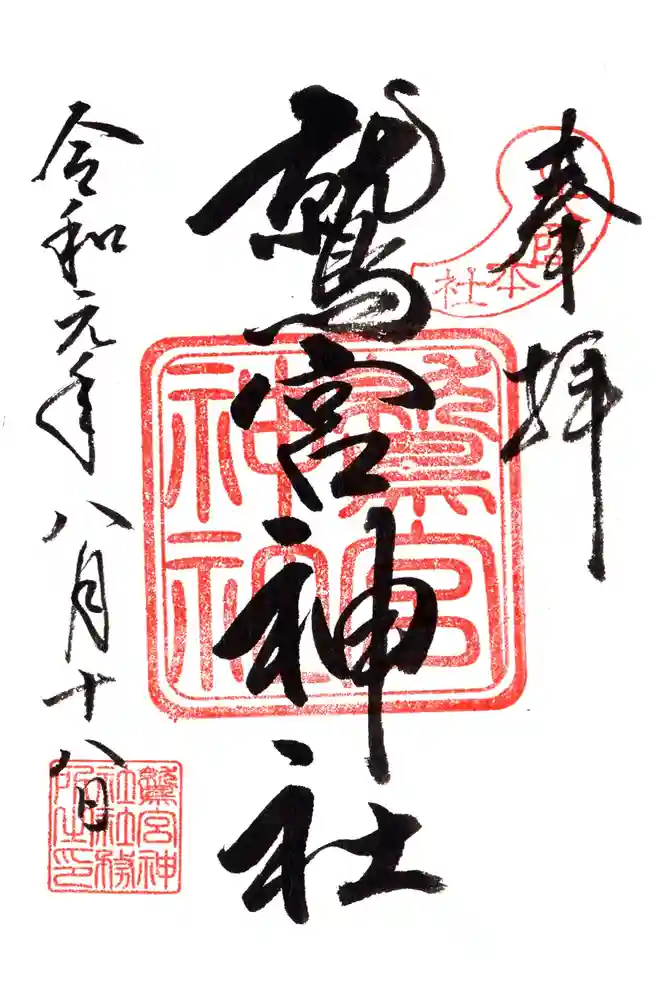 奉拝
本社
鷲宮神社
鷲宮
神社
令和元年八月十八日
鷲宮神
社社務
所之印